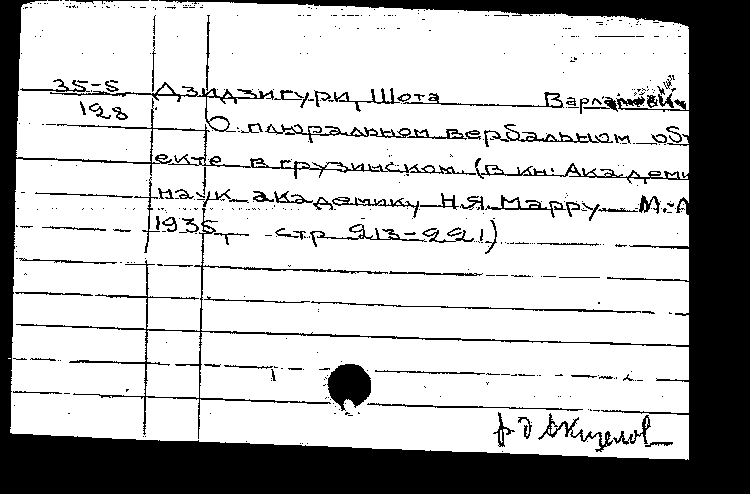 35-5 Дзидзигури, Шота
128 О плюральном вербальном объ
екте в грузинском. (В кн: Академи
наук академику Н.Я. Марру. М.-Л
1935, стр 213-221)